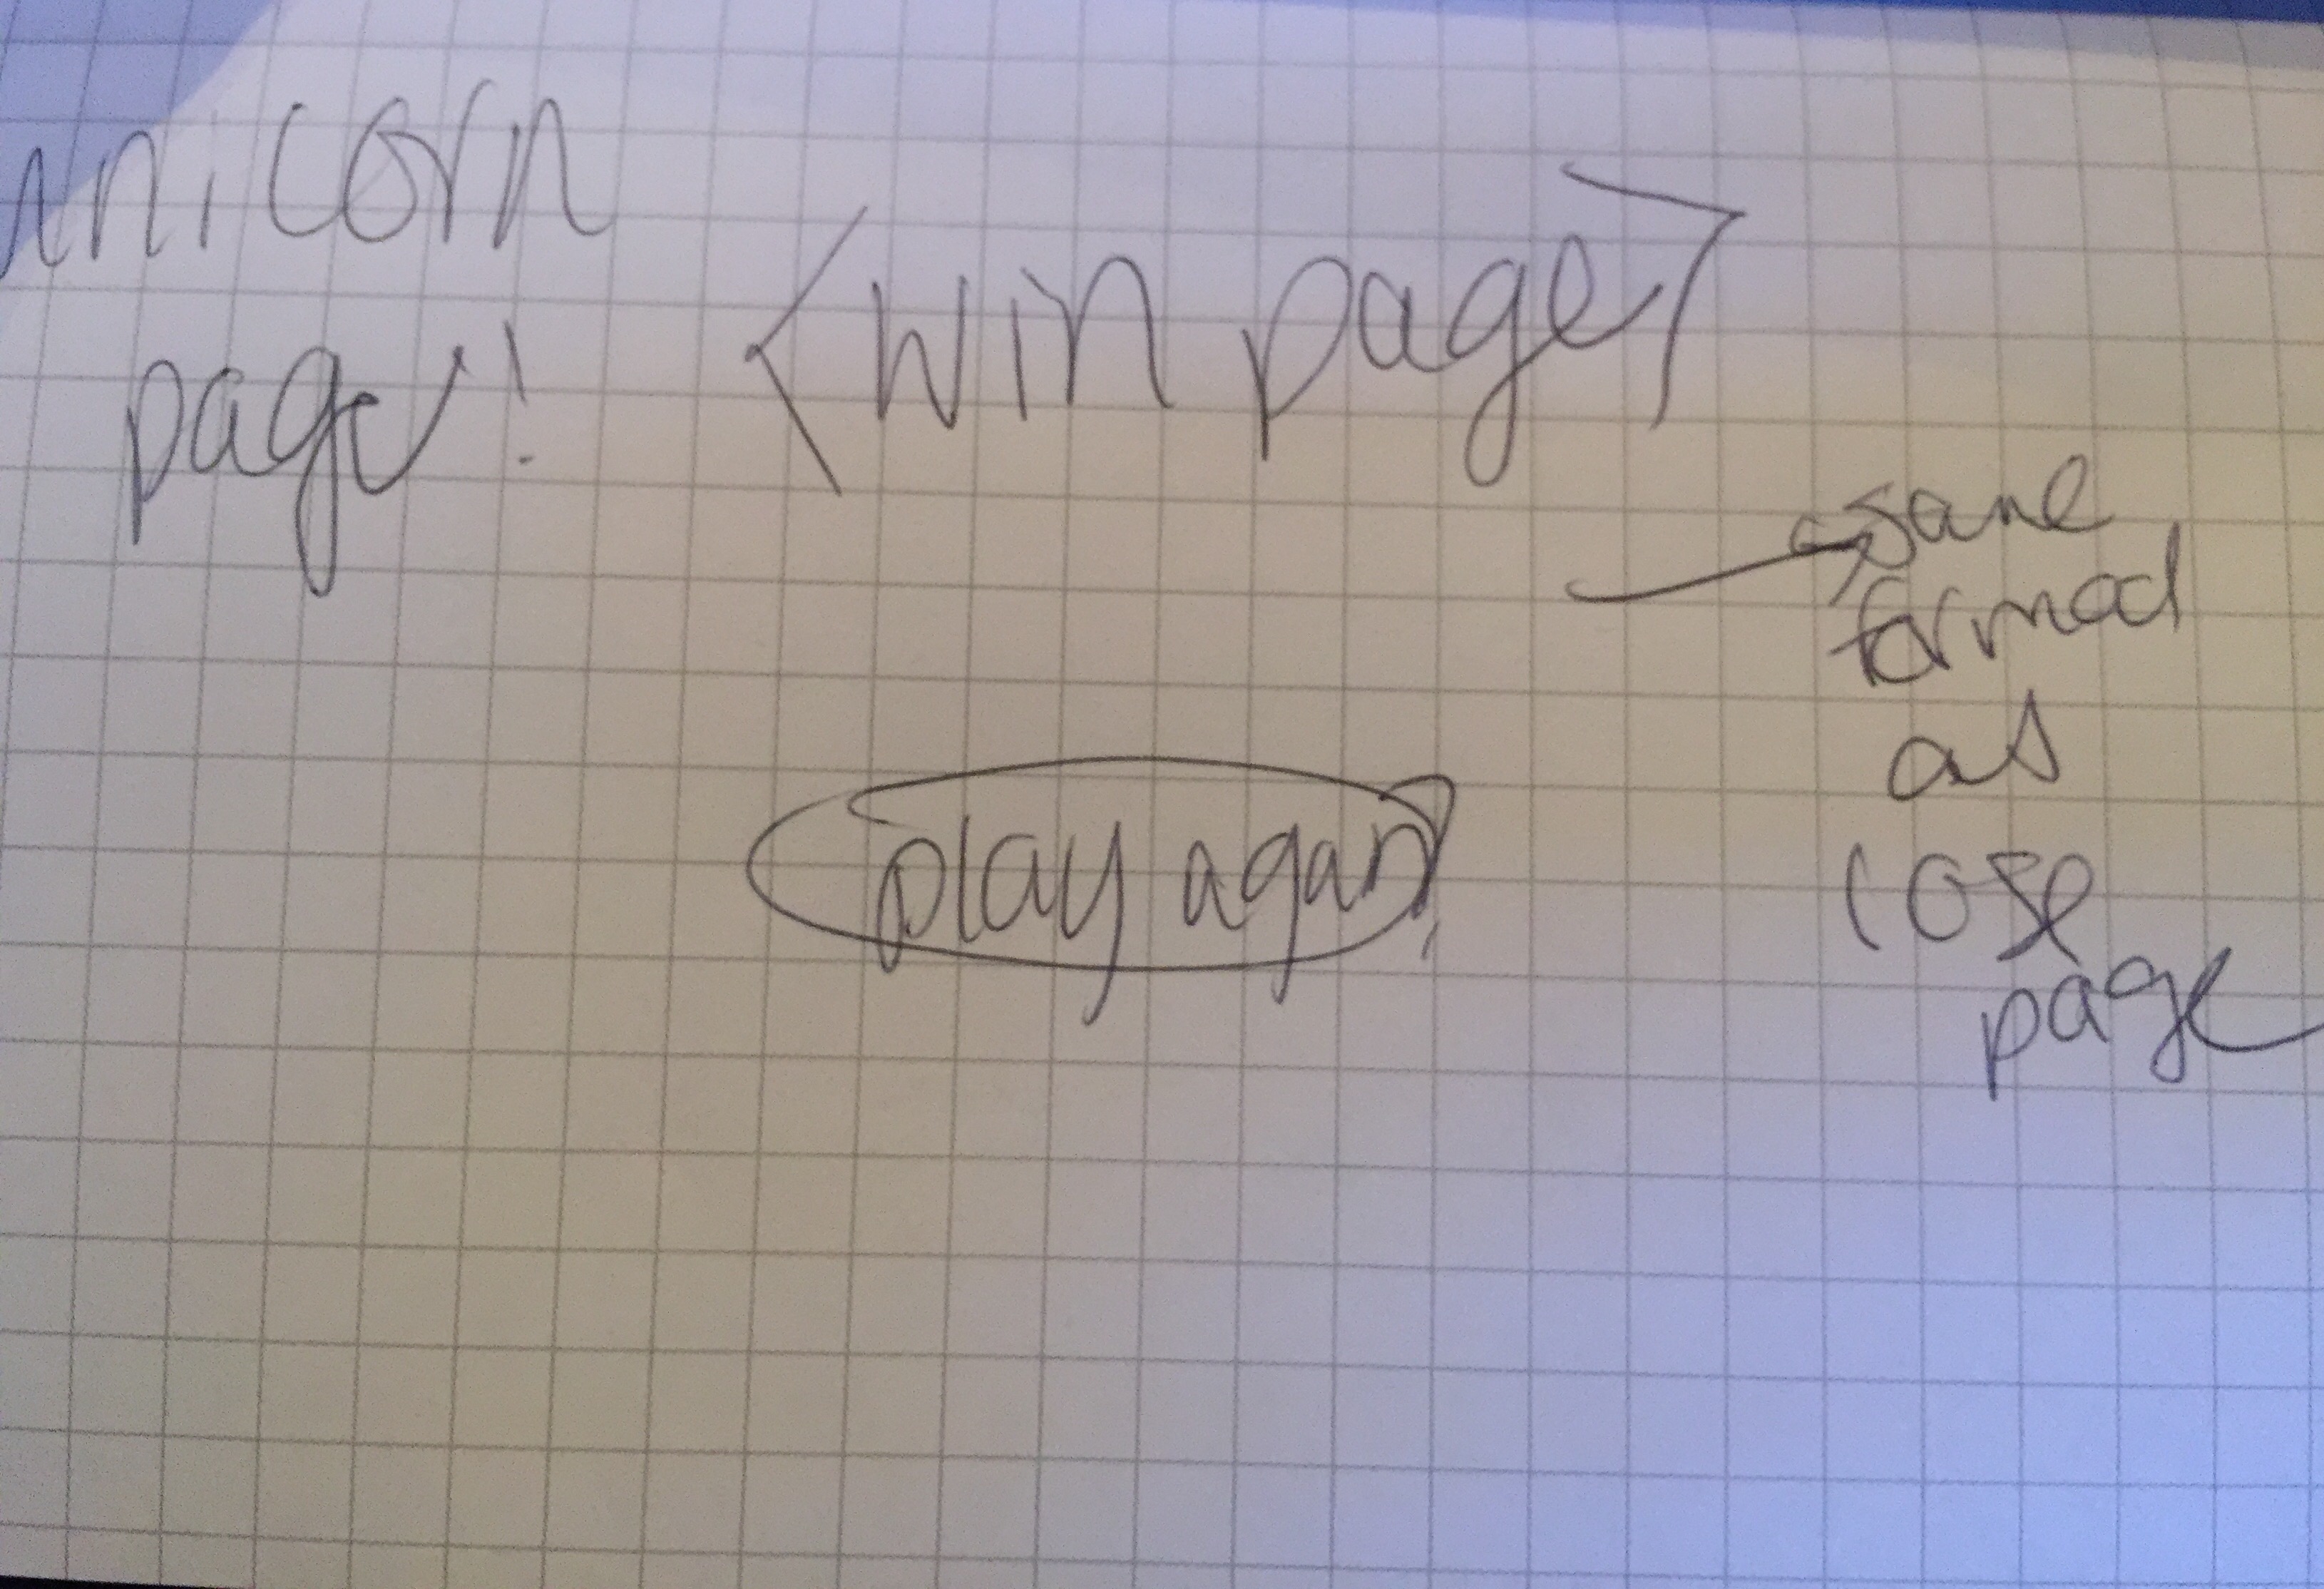 unicorn
page!
<win page>
same
formad
as
lose
page
play agan?